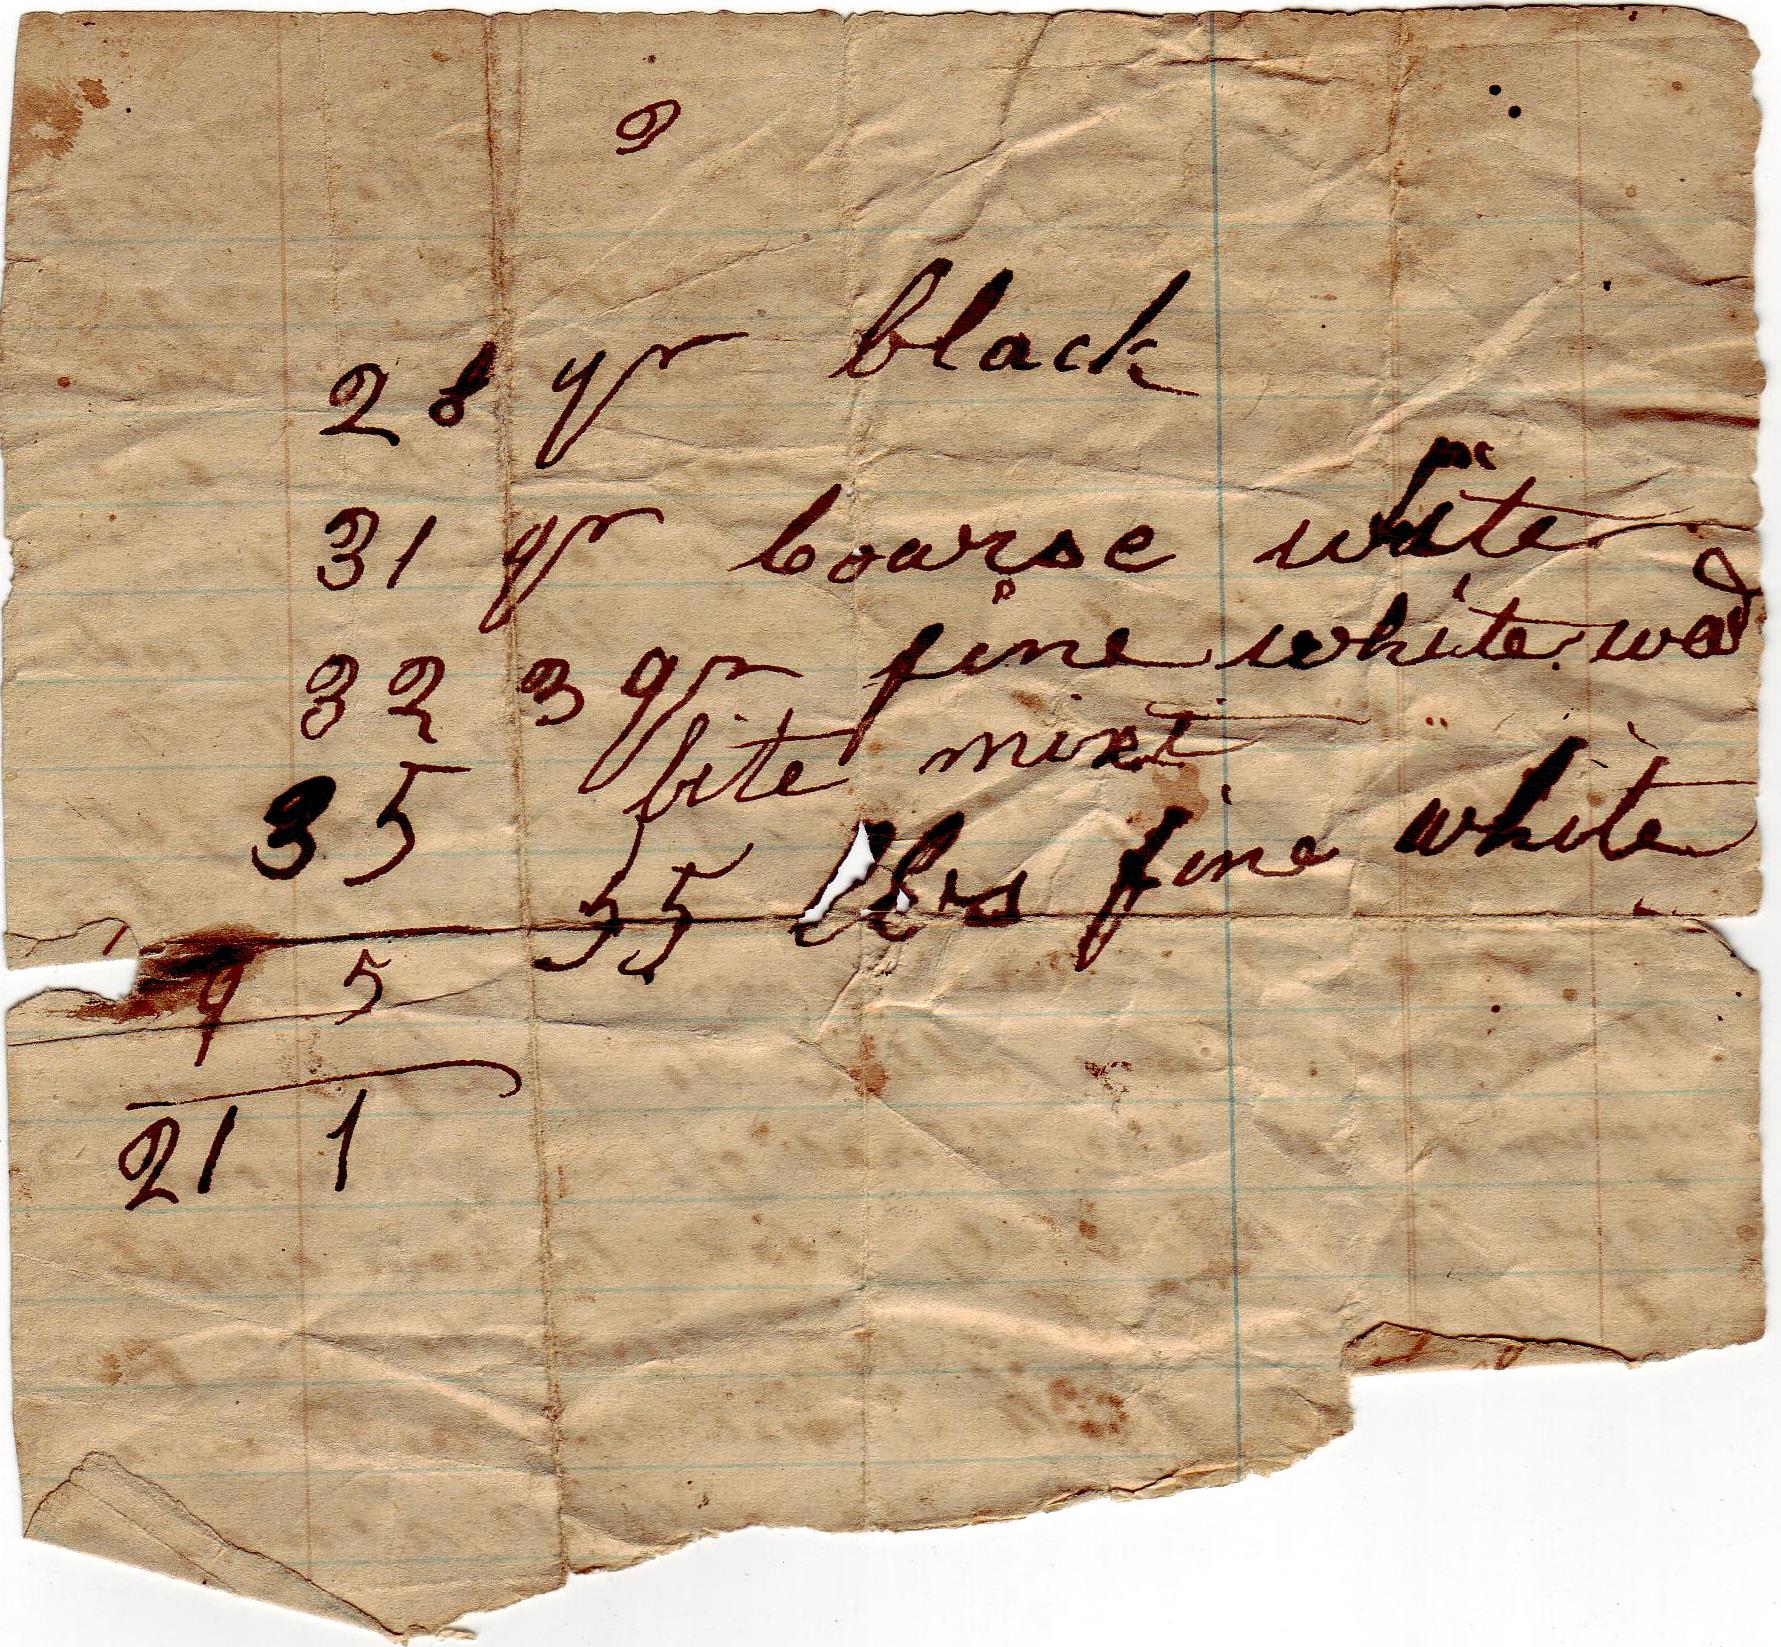 9
28 qr black
31 qr coarse white
32 3 qr fine white wad
bite mixt
35
55 lbs fine white
9 5
21 1